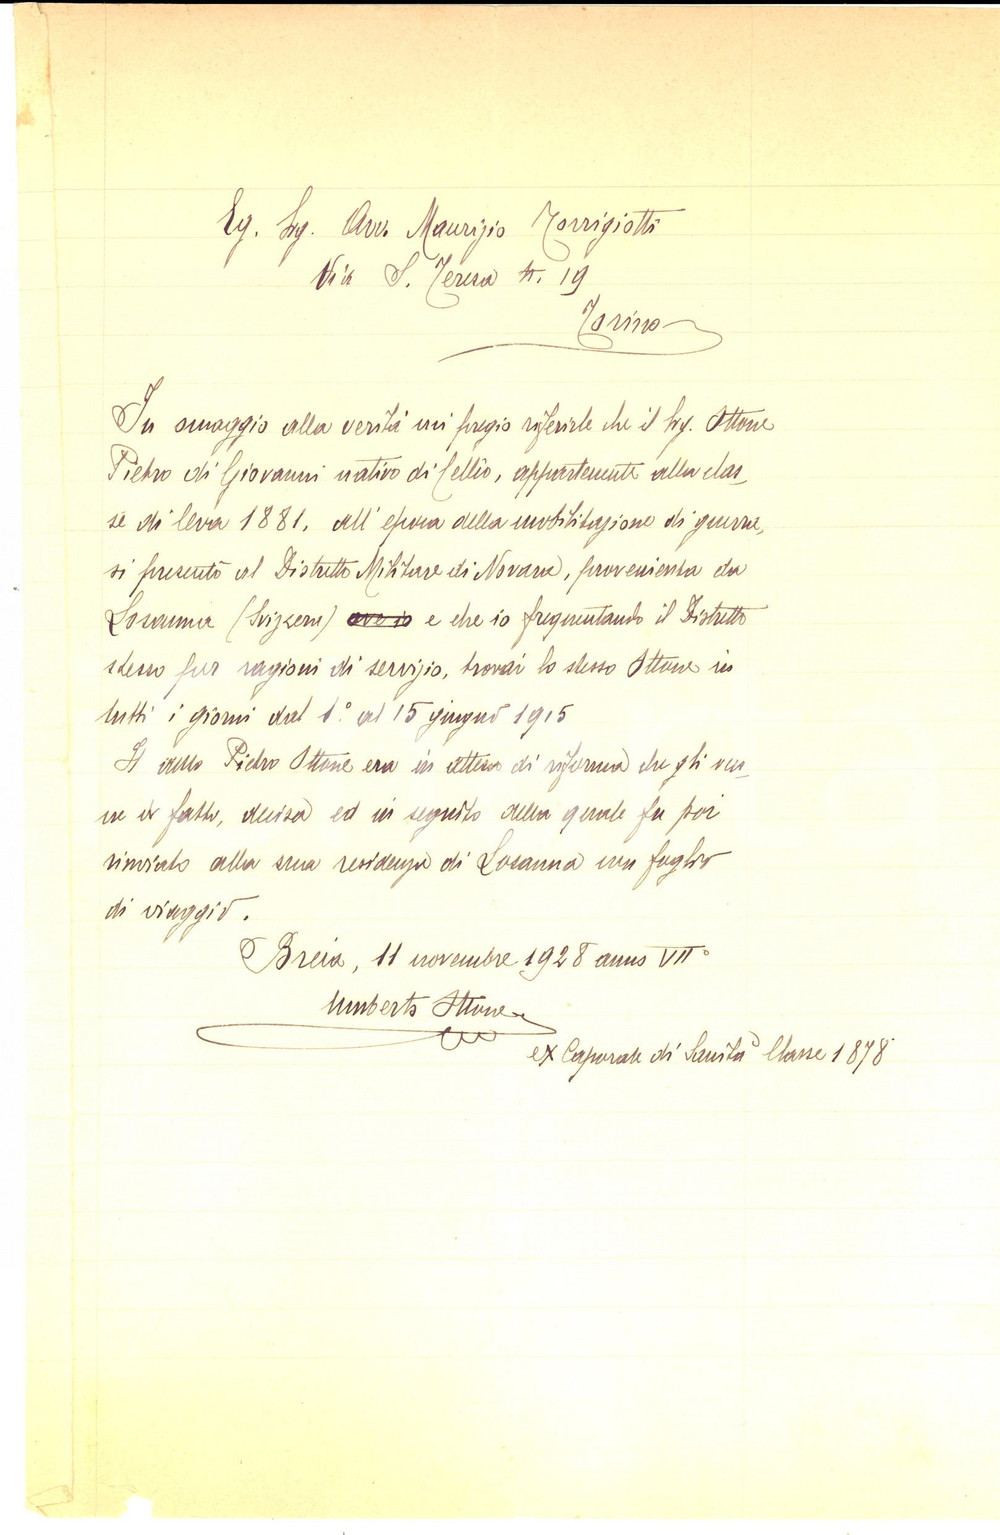 Eg. Sig. Avv. Maurizio Torrigiotti
Via S. Teresa N. 19
Torino
In omaggio alla verità mi pregio riferirle che il Sig. Ottone
Pietro di Giovanni nativo di Cellio, appartenente alla clas-
se di leva 1881, all'epoca della mobilitazione di guerra,
si presentò al Distretto Militare di Novara, proveniente da
Losanna (Svizzera) ove io e che io frequentando il Distretto
stesso per ragioni di servizio, trovai lo stesso Ottone in
tutti i giorni dal 1° al 15 giugno 1915
Il detto Pietro Ottone era in attesa di riforma che gli ven-
ne di fatto, decisa ed in seguito della quale fu poi
rinviato alla sua residenza di Losanna con foglio
di viaggio.
Breia, 11 novembre 1928 anno VII°
Umberto Ottone
ex Caporale di Sanità Classe 1878